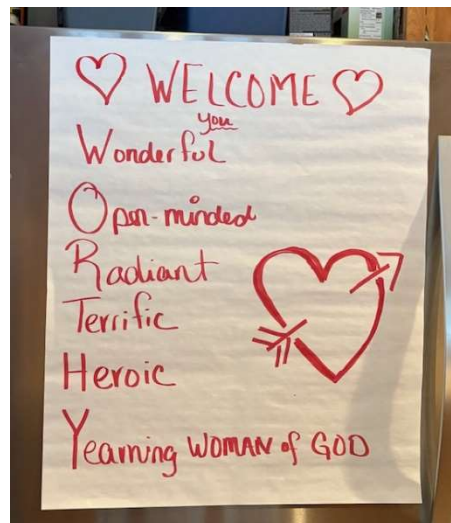 WELCOME
you
Wonderful
Open-minded
Radiant
Terrific
Heroic
Yearning WOMAN of GOD